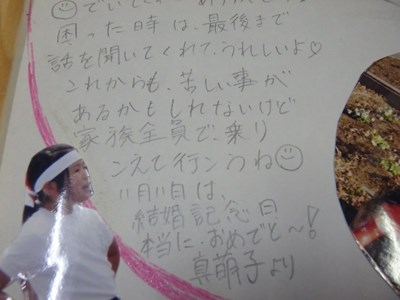 困った時は、最後まで
話を聞いてくれて、うれしいよ♡
これからも、苦しい事が
あるかもしれないけど
家族全員で、乗り
こえて行こうね☺
11月11日は、
結婚記念日
本当に、おめでと〜!
真萌子より